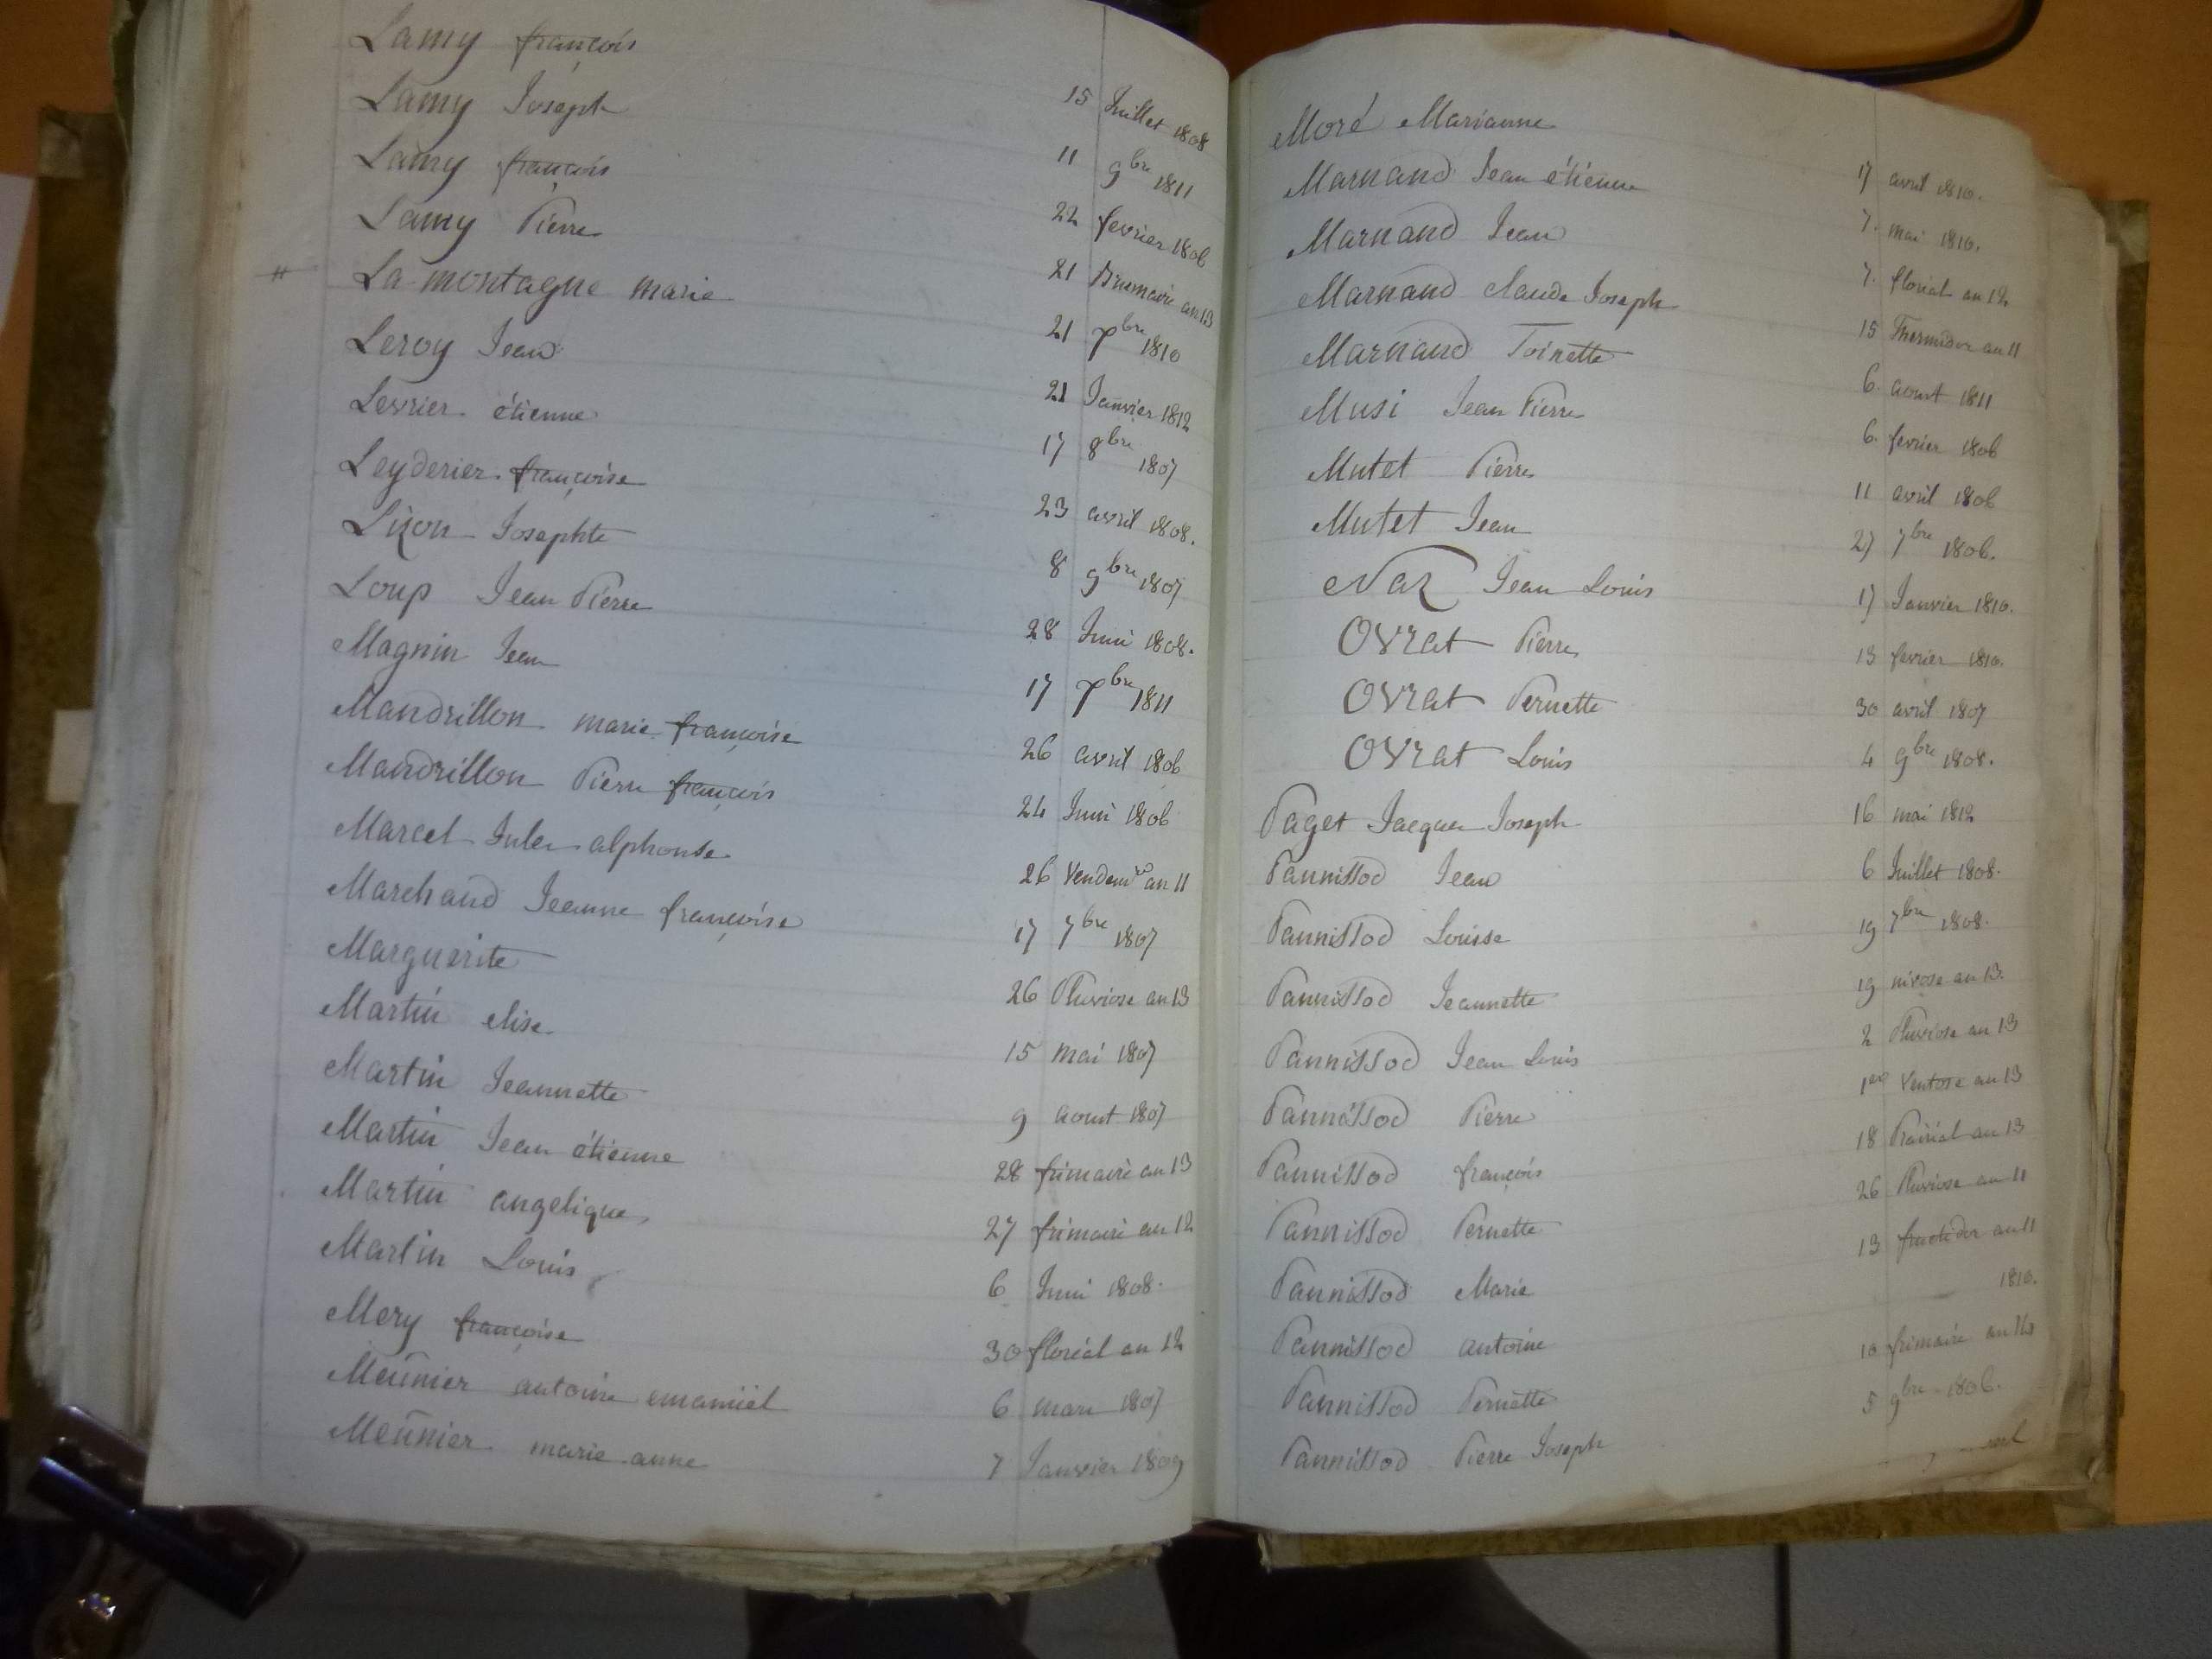 Lamy françois 15 Juillet 1808
Lamy Joseph 11 9bre 1811
Lamy françois 22 fevrier 1806
Lamy Pierre 21 Brumaire an 13
# La montagne marie 21 7bre 1810
Leroy Jean 21 Janvier 1812
Levrier étienne 17 8bre 1807
Leyderier françoise 23 avril 1808.
Lizon Josephte 8 9bre 1807
Loup Jean Pierre 28 Juin 1808.
Magnin Jean 17 7bre 1811
Mandrillon marie françoise 26 avril 1806
Mandrillon Pierre françois 24 Juin 1806
Marcel Jules alphonse 26 Vendemre an 11
Marchand Jeanne françoise 17 7bre 1807
Marguerite 26 Pluviose an 13
Martin elise 15 mai 1807
Martin Jeannette 9 aout 1807
Martin Jean étienne 28 frimaire an 13
Martin angelique 27 frimaire an 12
Martin Louis 6 Juin 1808.
Mery françoise 30 floréal an 12
Meunier antoine emanuël 6 mars 1807
Meunier marie anne 7 Janvier 1809
17 avril 1810.
Moré Marianne 7. mai 1810.
Marnand Jean étienne 7. floreal an 12
Marnand Jean 15 Thermidor an 11
Marnand Claude Joseph 6. aout 1811
Marnand Toinette 6. fevrier 1806
Musi Jean Pierre 11 avril 1806
Mutet Pierre 27 7bre 1806.
Mutet Jean 17 Janvier 1810.
Naz Jean Louis 13 fevrier 1810.
Ovrat Pierre 30 avril 1807
Ovrat Pernette 4 9bre 1808.
Ovrat Louis 16 mai 1812
Paget Jacques Joseph 6 Juillet 1808.
Pannissod Jean 19 7bre 1808.
Pannissod Louise 19 nivose an 13.
Pannissod Jeannette 2 Pluviose an 13
Pannissod Jean Louis 1er Ventose an 13
Pannissod Pierre 18 Prairial an 13
Pannissod françois 26 Pluviose an 11
Pannissod Pernette 13 fructidor an 11
Pannissod Marie 1810.
Pannissod antoine 10 frimaire an 14
Pannissod Pernette 5 9bre 1806.
Pannissod Pierre Joseph